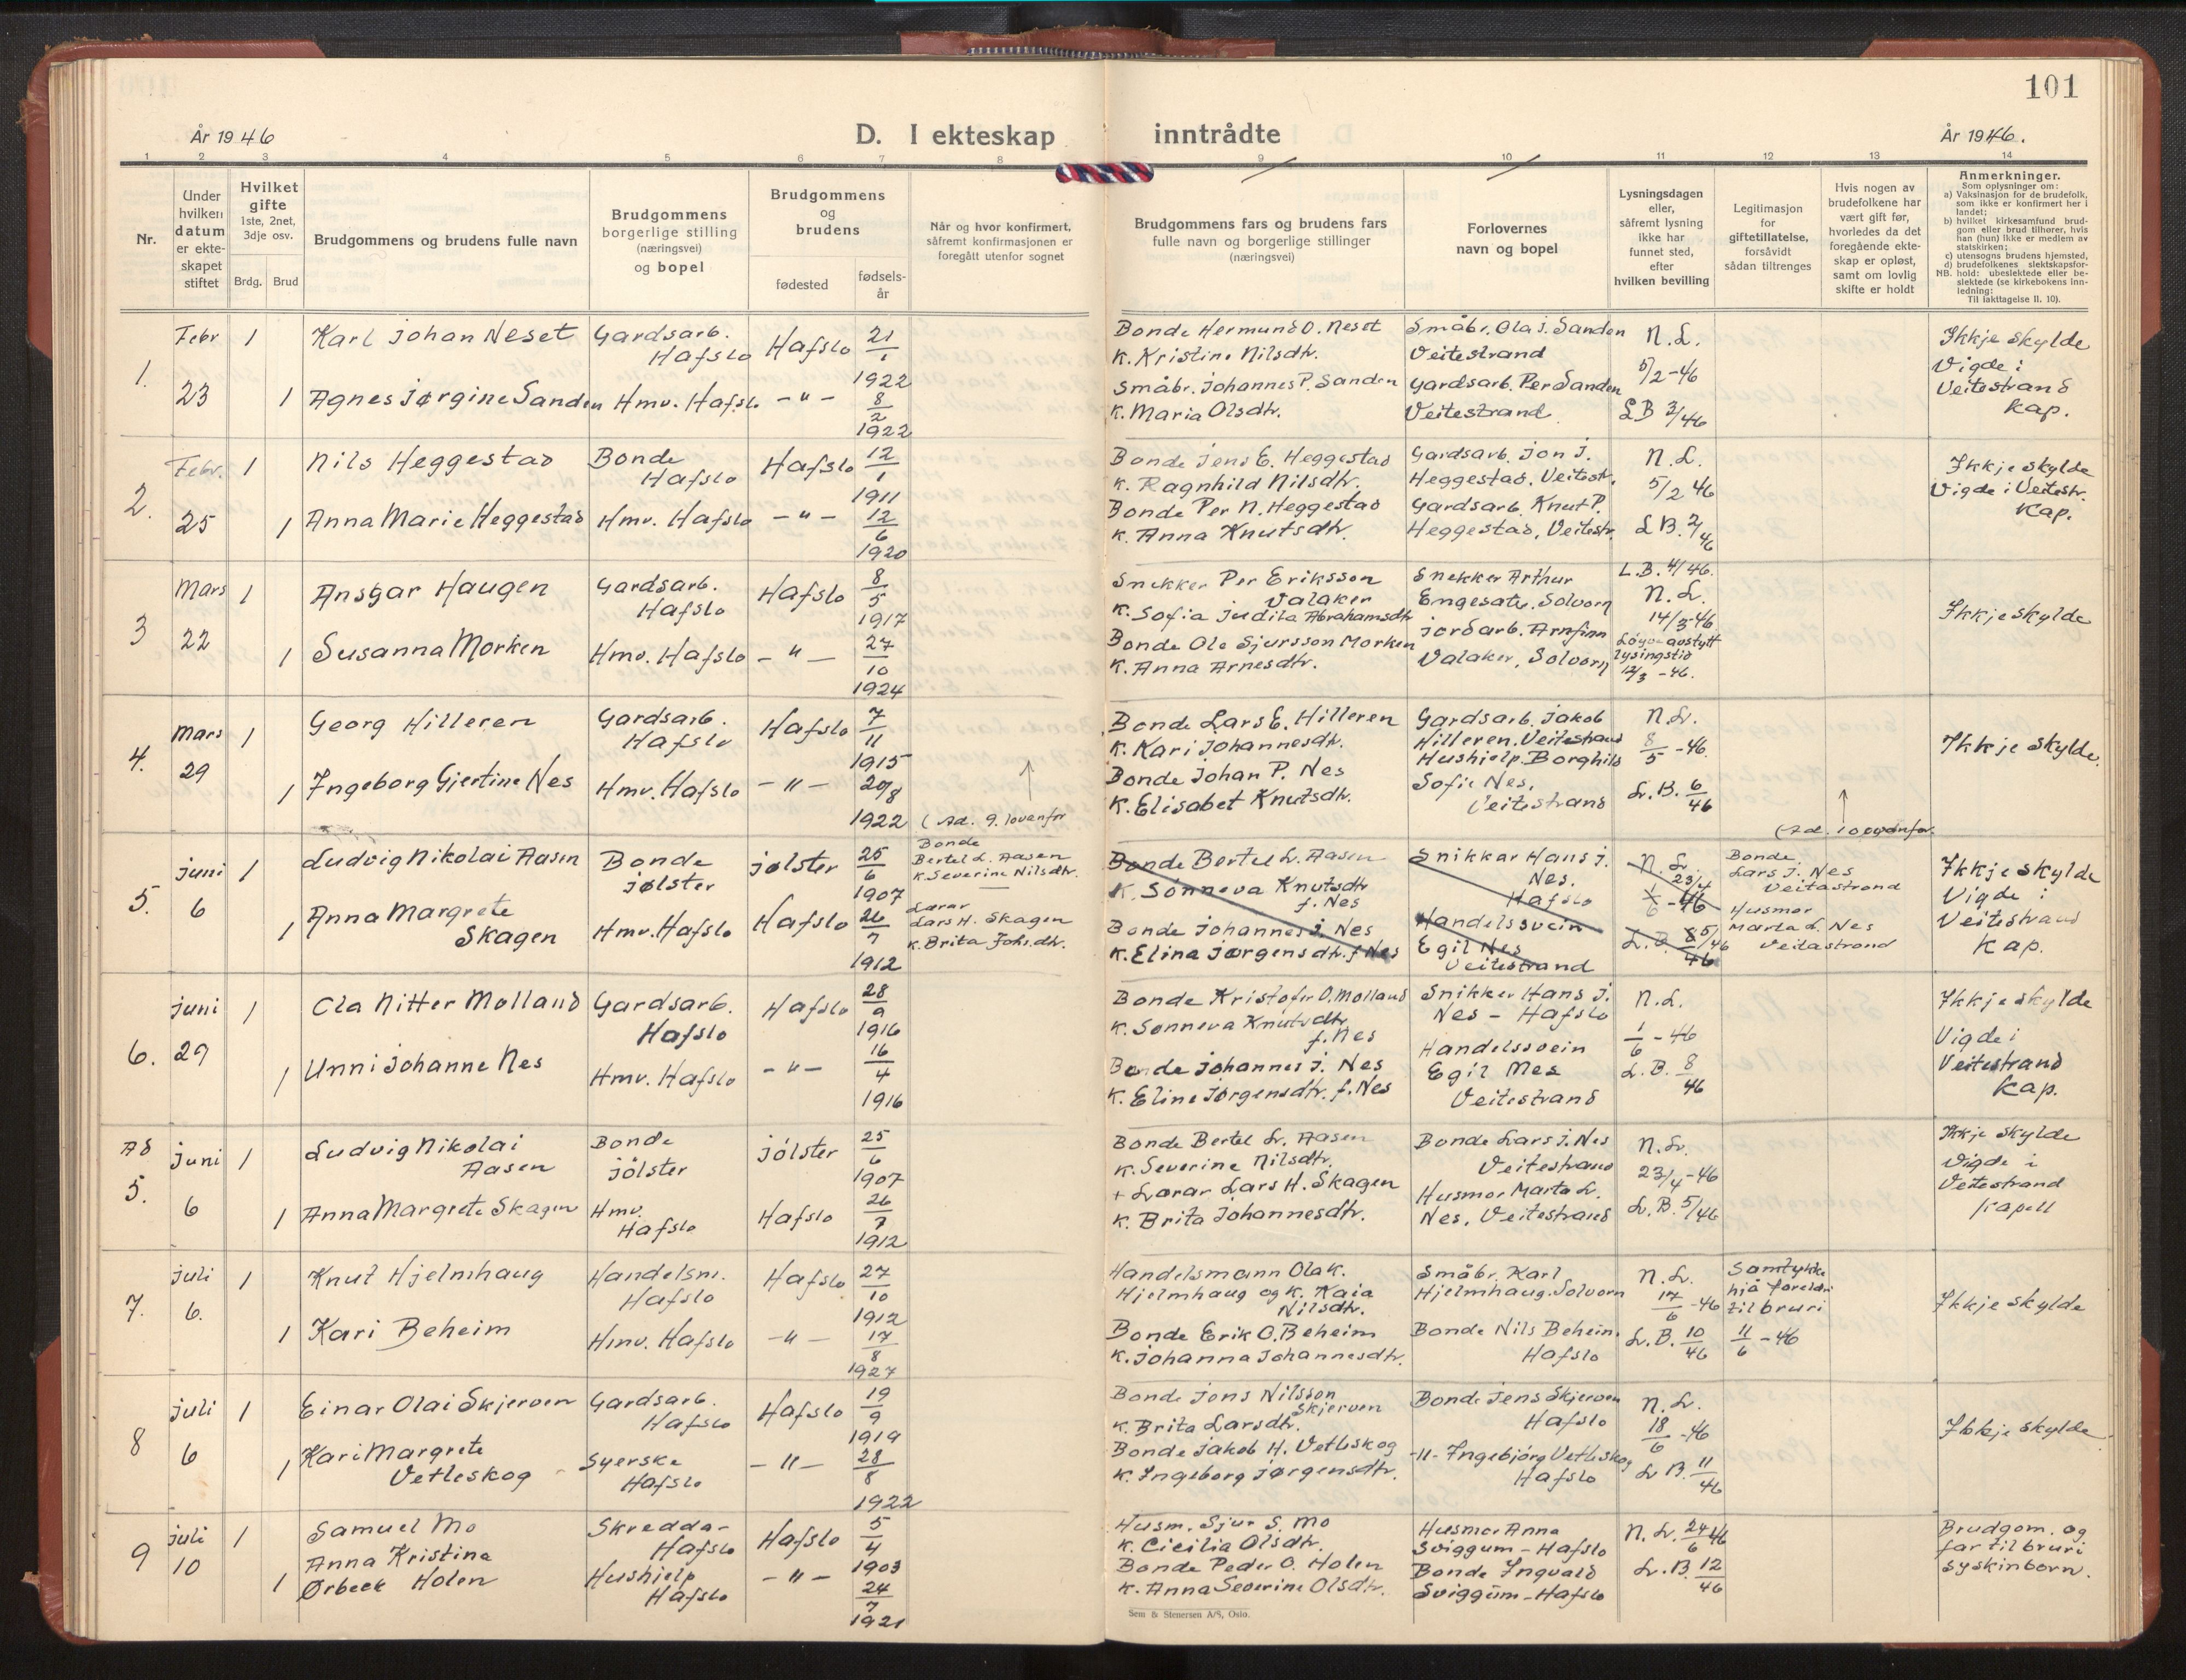 101
År 1946
D. I ekteskap inntrådte
År 1946.
1 2 3 4 5 6 7 8 9 10 11 12 13 14
Nr.
Under hvilken datum er ekteskapet stiftet
Hvilket gifte
1ste, 2net, 3dje osv.
Brdg. Brud
Brudgommens og brudens fulle navn
Brudgommens borgerlige stilling (næringsvei) og bopel
Brudgommens og brudens
fødested
fødselsår
Når og hvor konfirmert, såfremt konfirmasjonen er foregått utenfor sognet
Brudgommens fars og brudens fars fulle navn og borgerlige stillinger (næringsvei)
Forlovernes navn og bopel
Lysningsdagen eller, såfremt lysning ikke har funnet sted, efter hvilken bevilling
Legitimasjon for giftetillatelse, forsåvidt sådan tiltrenges
Hvis nogen av brudefolkene har vært gift før, hvorledes da det foregående ekteskap er opløst, samt om lovlig skifte er holdt
Anmerkninger.
Som oplysninger om:
a) Vaksinasjon for de brudefolk, som ikke er konfirmert her i landet;
b) hvilket kirkesamfund brudgom eller brud tilhører, hvis han (hun) ikke er medlem av statskirken;
c) utensogns brudens hjemsted,
d) brudefolkenes slektskapsforhold: ubeslektede eller beslektede (se kirkebokens innledning:
NB.
Til iakttagelse II. 10).
1. Febr 23
1 Karl Johan Neset Gardsarb. Hafslo Hafslo 21/1 1922
1 Agnes Jørgine Sanden Hmv. Hafslo - " - 8/2 1922
Bonde Hermund O. Neset
K. Kristine Nilsdtr.
Småbr. Johannes P. Sanden
K. Maria Olsdtr.
Småbr. Ola J. Sanden
Veitestrand
Gardsarb. Per Sanden
Veitestrand
N.L.
5/2-46
LB 3/46
Ikkje skylde
Vigde i
Veitestrand
Kap.
2. Febr. 25
1 Nils Heggestad Bonde Hafslo Hafslo 12/1 1911
1 Anna Marie Heggestad Hmv. Hafslo - " - 12/6 1920
Bonde Jens E. Heggestad
K. Ragnhild Nilsdtr.
Bonde Per N. Heggestad
K. Anna Knutsdtr.
Gardsarb. Jon J.
Heggestad, Veitestr.
Gardsarb. Knut P.
Heggestad, Veitestr.
N.L.
5/2 46
L B. 2/46
Ikkje skylde
Vigde i Veitestr.
Kap.
3 Mars 22
1 Ansgar Haugen Gardsarb. Hafslo Hafslo 8/5 1917
1 Susanna Morken Hmv. Hafslo - " - 27/10 1924
Snekker Per Eriksson
Valaker
K. Sofia Judita Abrahamsdtr
Bonde Ole Sjursson Morken
K. Anna Arnesdtr.
Snekker Arthur
Engesætr. Solvorn
Jordarb. Arnfinn
Valaker, Solvorn
L.B. 4/46.
N.L.
14/3-46
Løyve avstytt
lysingstid
12/3 -46.
Ikkje skylde
4. Mars 29
1 Georg Hilleren Gardsarb. Hafslo Hafslo 7/11 1915
1 Ingeborg Gjertine Nes Hmv. Hafslo - " - 20/8 1922
Bonde Lars E. Hilleren
K. Kari Johannesdtr.
Bonde Johan P. Nes
K. Elisabet Knutsdtr.
Gardsarb. Jakob
Hilleren, Veitestrand
Hushjelp Borghild
Sofie Nes,
Veitestrand
N.L.
8/5 -46
L.B. 6/46
Ikkje skylde.
(Ad. 9. lovanfor
(Ad. 10 ovanfor.
5. Juni 6
1 Ludvig Nikolai Aasen Bonde Jølster Jølster 25/6 1907
1 Anna Margrete Skagen Hmv. Hafslo Hafslo 26/7 1912
Bonde
Bertel L. Aasen
K. Severine Nilsdtr.
Lærar
Lars H. Skagen
K. Brita Johs.dtr.
Bonde Bertel L. Aasen
K. Sønneva Knutsdtr
f. Nes
Bonde Johannes J. Nes
K. Elina Jørgensdtr. f. Nes
Snikkar Hans J.
Nes.
Hafslo
Handelssvein
Egil Nes
Veitestrand
N.L.
23/4
1/6 -46
L.B. 8/46 5/46
Bonde
Lars J. Nes
Veitastrond
Husmor
Marta L. Nes
Veitastrond
Ikkje skylde
Vigde i
Veitestrand
Kap.
6. Juni 29
1 Ola Nitter Molland Gardsarb. Hafslo Hafslo 28/9 1916
1 Unni Johanne Nes Hmv. Hafslo - " - 16/4 1916
Bonde Kristofer O. Molland
K. Sønneva Knutsdtr
f. Nes
Bonde Johannes J. Nes
K. Eline Jørgensdtr. f. Nes
Snikker Hans J.
Nes - Hafslo
Handelssvein
Egil Nes
Veitestrand
N.L.
1/6 -46
L.B. 8/46
Ikkje skylde
Vigde i
Veitestrand
Kap.
Ad 5. Juni 6
1 Ludvig Nikolai Aasen Bonde Jølster Jølster 25/6 1907
1 Anna Margrete Skagen Hmv. Hafslo Hafslo 26/7 1912
Bonde Bertel L. Aasen
K. Severine Nilsdtr.
+ Lærar Lars H. Skagen
K. Brita Johannesdtr.
Bonde Lars J. Nes
Veitestrand
Husmor Marta L.
Nes, Veitestrand
N.L.
23/4-46
L.B. 5/46
Ikkje skylde
Vigde i
Veitestrand
Kapell
7. Juli 6.
1 Knut Hjelmhaug Handelsm. Hafslo Hafslo 27/10 1912
1 Kari Beheim Hmv. Hafslo - " - 17/8 1927
Handelsmann Ola K.
Hjelmhaug og K. Kaia
Nilsdtr.
Bonde Erik O. Beheim
K. Johanna Johannesdtr.
Småbr. Karl
Hjelmhaug. Solvorn
Bonde Nils Beheim.
Hafslo
N.L.
17/6 -46
L.B. 10/46
Samtykke
hjå foreldri
til bruri
11/6 -46
Ikkje skylde
8 Juli 6
1 Einar Olai Skjerven Gardsarb. Hafslo Hafslo 19/9 1919
1 Kari Margrete Vetleskog Syerske Hafslo - " - 28/8 1922
Bonde Jens Nilsson
Skjerven
K. Brita Larsdtr.
Bonde Jakob H. Vetleskog
K. Ingeborg Jørgensdtr.
Bonde Jens Skjerven
Hafslo
-"- Ingebjørg Vetleskog
Hafslo
N.L.
18/6 -46
L B. 11/46
Ikkje skylde
9 Juli 10
1 Samuel Mo Skreddar Hafslo Hafslo 5/4 1903
1 Anna Kristina Ørbeck Holen Hushjelp Hafslo - " - 24/7 1921
Husm. Sjur S. Mo
K. Cicilia Olsdtr.
Bonde Peder O. Holen
K. Anna Severine Olsdtr.
Husmor Anna
Sviggum - Hafslo
Bonde Ingvald
Sviggum - Hafslo
N.L. 24/6 46
L.B. 12/46
Brudgom. og
far til bruri
syskinborn.
Sem & Stenersen A/S, Oslo.